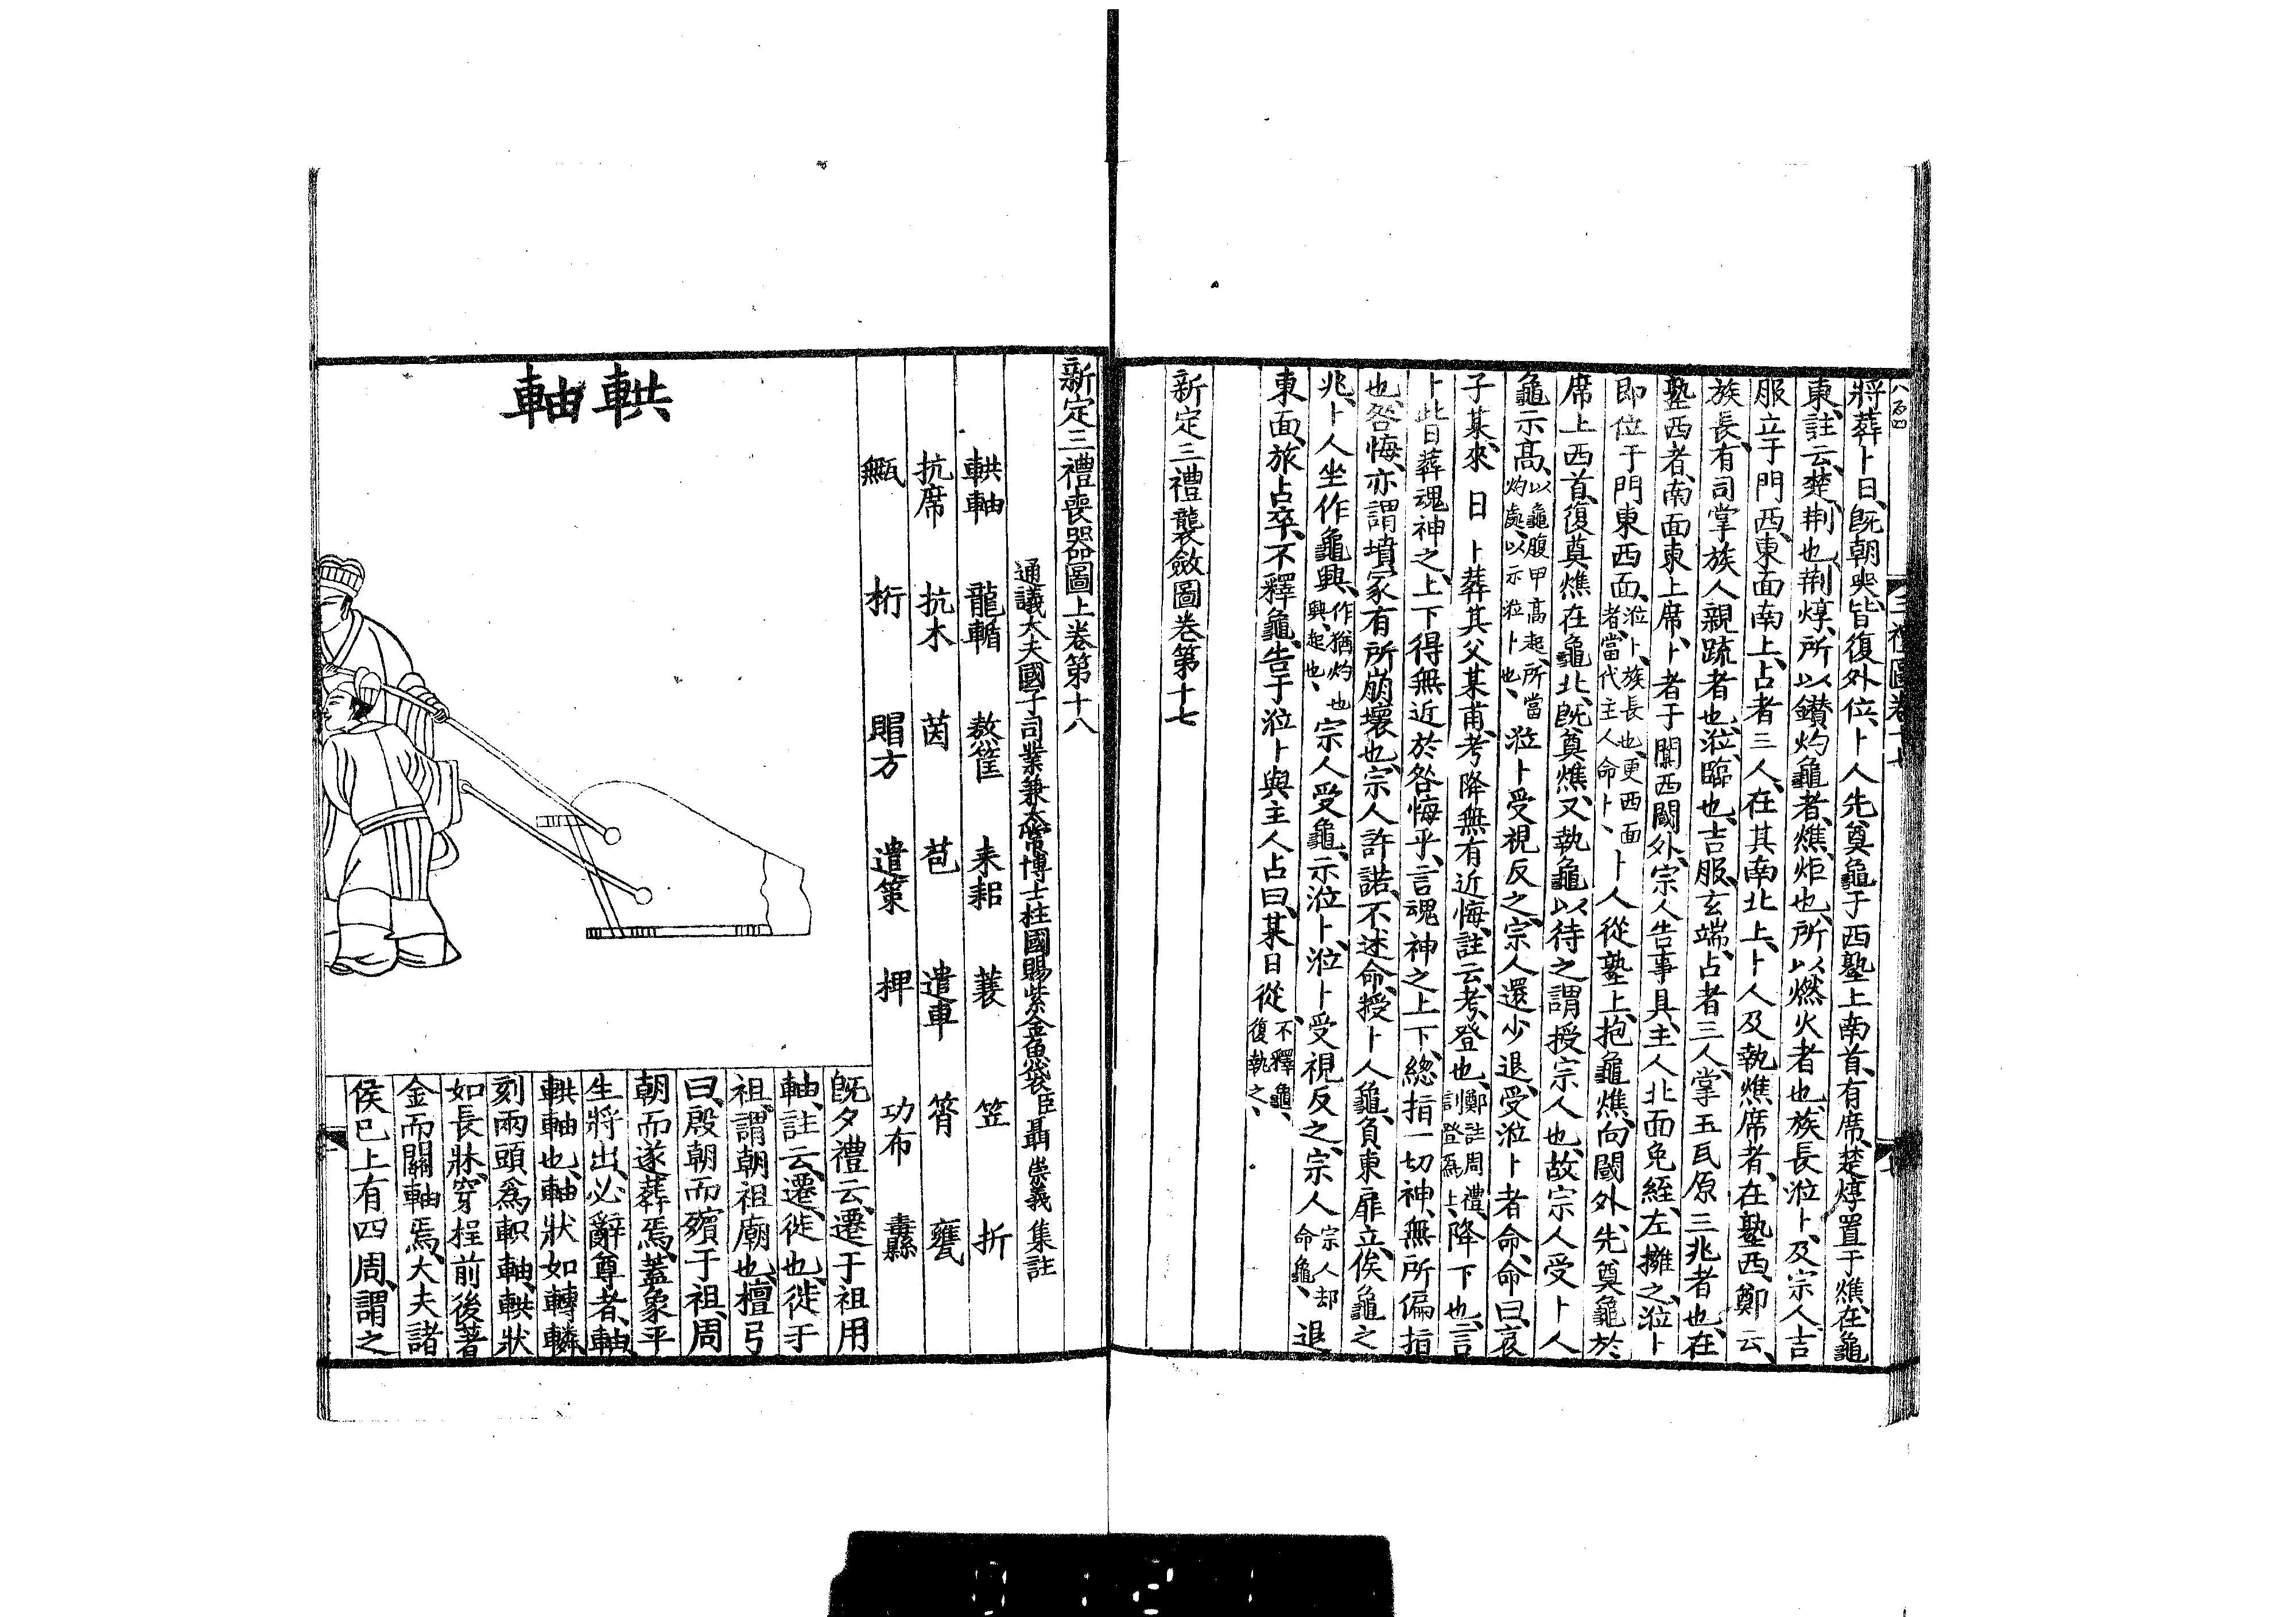 將葬卜日、旣朝哭、皆復外位、卜人先奠龜于西塾上南首、有席、楚焞置于燋、在龜
東、註云、楚、荆也、荆焞、所以鑽灼龜者、燋、炬也、所以燃火者也、族長涖卜、及宗人吉
服立于門西、東面南上、占者三人、在其南北上、卜人及執燋席者、在塾西、鄭云、
族長、有司掌族人親疏者也、涖、臨也、吉服、玄端、占者三人、掌玉瓦原三兆者也、在
塾西者、南面東上席、卜者于闑西閾外、宗人告事具、主人北面免絰、左擁之、涖卜
即位于門東西面、涖卜、族長也、更西面者、當代主人命卜、卜人從塾上、抱龜燋、向閾外、先奠龜於
席上西首、復奠燋在龜北、旣奠燋、又執龜以待之、謂授宗人也、故宗人受卜人
龜示高、以龜腹甲高起、所當灼處、以示涖卜也、涖卜受視反之、宗人還少退、受涖卜者命、命曰、哀
子某、來日卜葬其父某甫、考降無有近悔、註云、考、登也、鄭註周禮、訓登爲上、降下也、言
卜此日葬魂神之上下得無近於咎悔乎、言魂神之上下、總指一切神、無所偏指
也、咎悔、亦謂墳冢有所崩壞也、宗人許諾、不述命、授卜人龜、負東扉立、俟龜之
兆、卜人坐作龜興、作猶灼也興、起也、宗人受龜、示涖卜、涖卜受視反之、宗人宗人却命龜、退
東面、旅占卒、不釋龜、告于涖卜與主人占曰、某日從不釋龜、復執之、
新定三禮襲斂圖卷第十七
新定三禮喪器圖上卷第十八
通議大夫國子司業兼太常博士柱國賜紫金魚袋臣聶崇義集註
輁軸 龍輴 熬筐 耒耜 蓑 笠 折
抗席 抗木 茵 苞 遣車 筲 甕
甒 桁 賵方 遣策 椑 功布 纛
輁軸
旣夕禮云、遷于祖用
軸、註云、遷、徙也、徙于
祖、謂朝祖廟也、檀弓
曰、殷朝而殯于祖、周
朝而遂葬焉、蓋象平
生將出、必辭尊者、軸、
輁軸也、軸狀如轉轔、
刻兩頭爲軹、軸、輁狀
如長牀、穿桯前後著
金而關軸焉、大夫諸
侯已上有四周、謂之